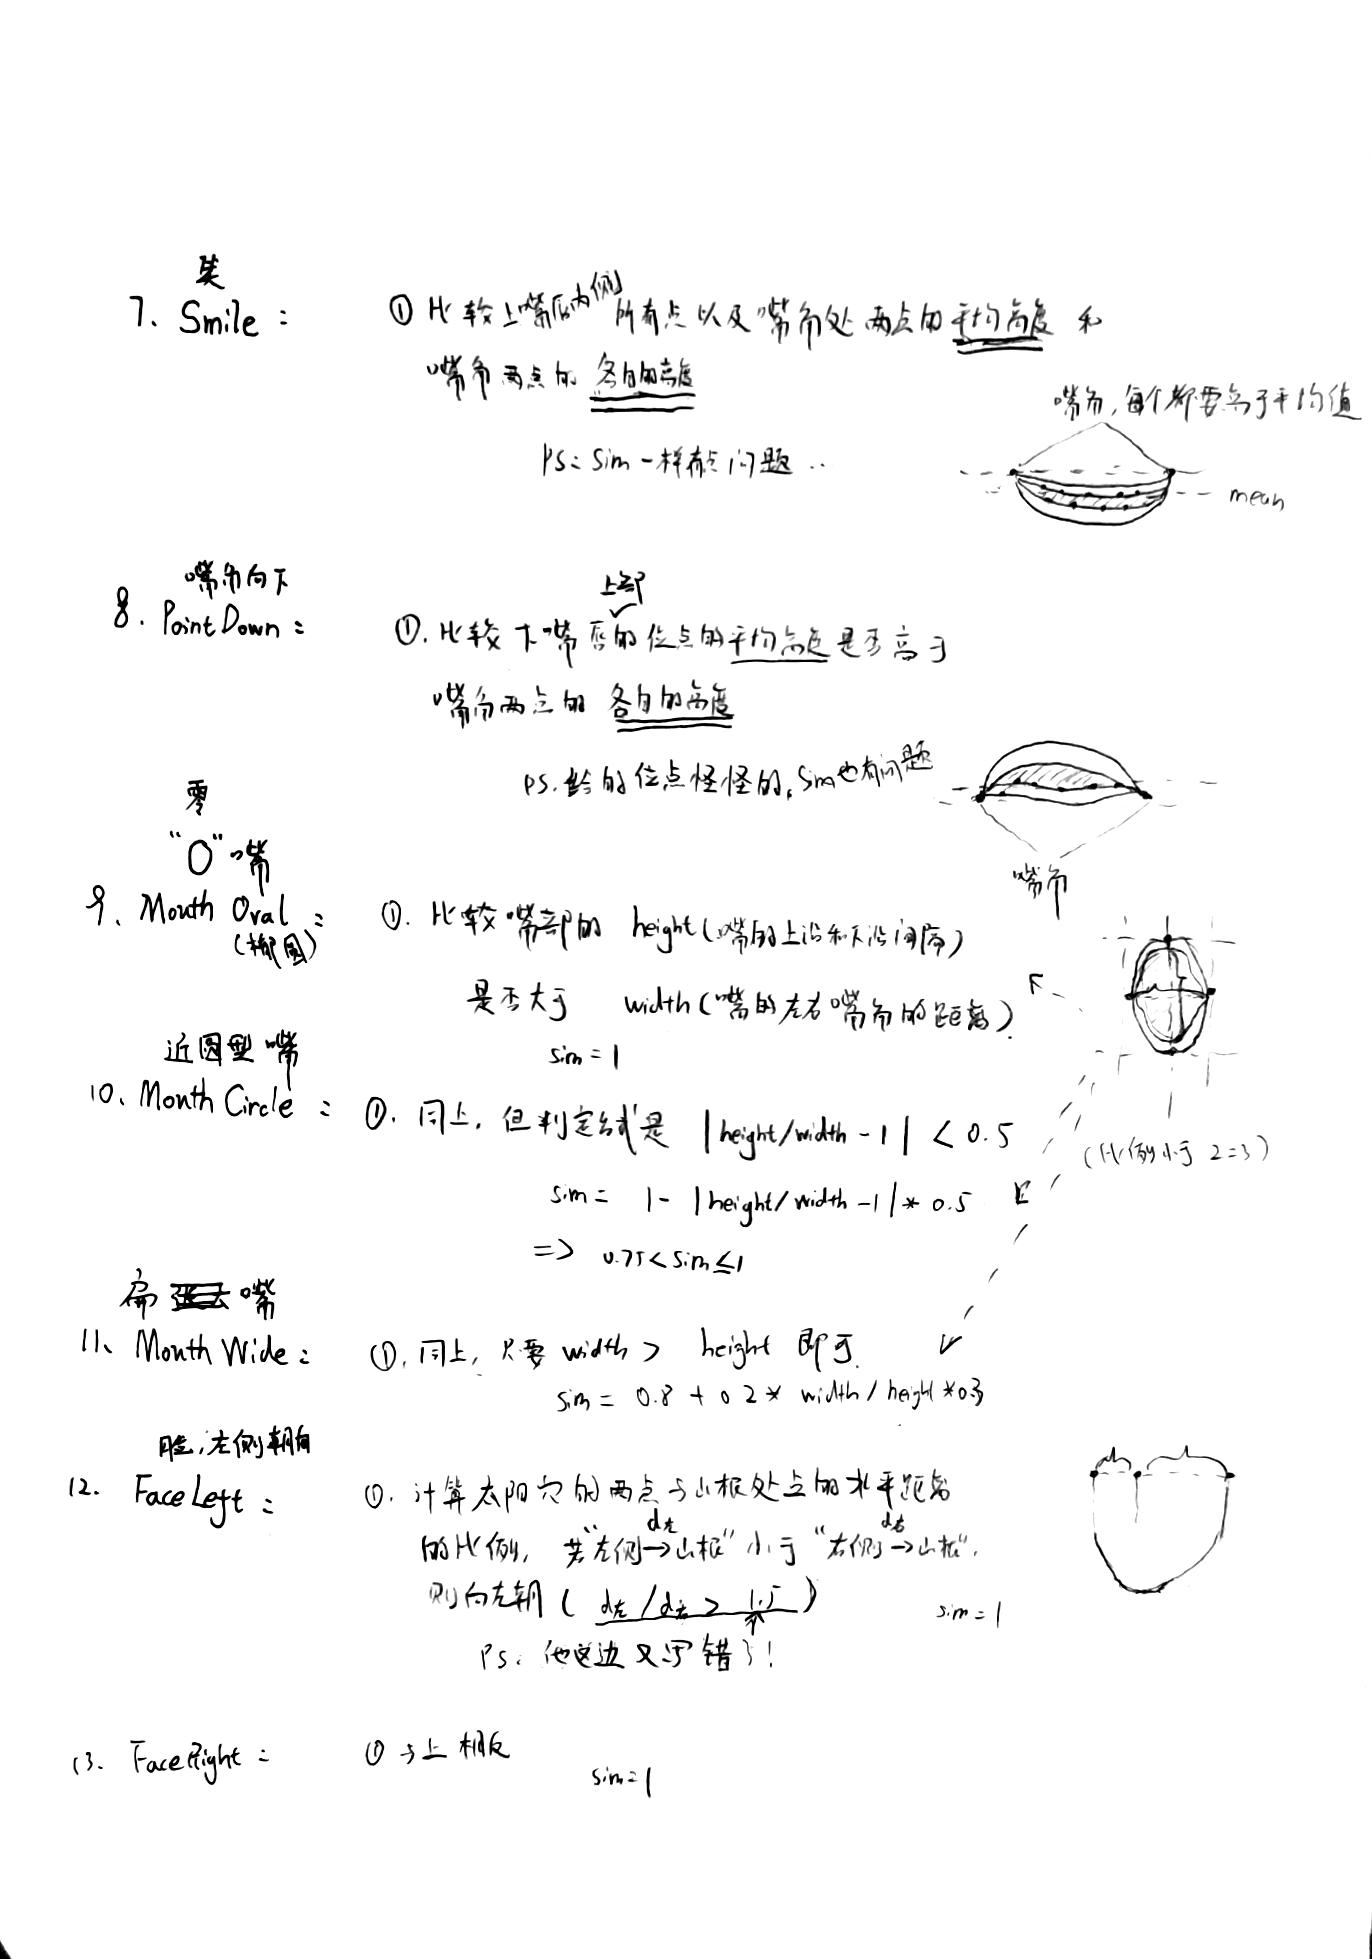 笑
7. Smile:
① 比较上嘴唇内侧所有点以及嘴角处两点的平均高度 和
嘴角两点的 各自的高度
嘴角,每个都要高于平均值
PS: Sim一样有点问题..
mean
嘴角向下
8. Point Down:
上部
①. 比较下嘴唇的位点的平均高度是否高于
嘴角两点的 各自的高度
PS. 给的位点怪怪的,Sim也有问题
嘴角
零
"O"嘴
9. Mouth Oval:
(椭圆)
①. 比较嘴部的 height(嘴的上沿和下沿间隔)
是否大于 width(嘴的左右嘴角的距离)
sim = 1
近圆型嘴
10. Month Circle:
①. 同上, 但判定公式是 |height/width - 1| < 0.5
(比例小于 2:3)
sim = 1 - |height/width - 1| * 0.5
=> 0.75 < sim ≤ 1
扁 嘴
11. Month Wide:
①. 同上, 只要 width > height 即可.
sim = 0.8 + 0.2 * width / height * 0.3
脸,左侧朝向
12. Face Left:
①. 计算太阳穴的两点与山根处点的水平距离
d左 d右
的比例, 若"左侧→山根"小于"右侧→山根".
则向左朝 ( d左 / d右 > 1.5 )
sim = 1
PS: 他这边又写错了!
13. Face Right:
① 与上相反
sim = 1